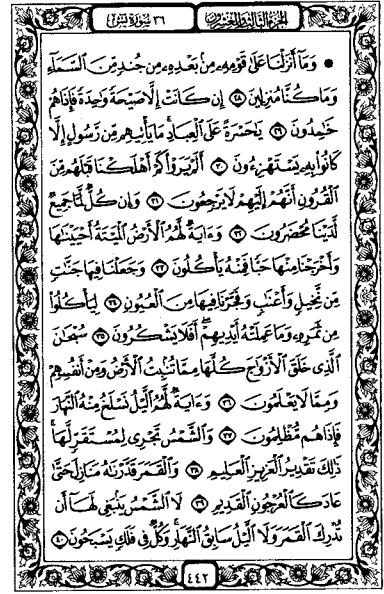 الجزء الثالث والعشرون ٣٦ سورة يس
۞ وَمَا أَنزَلْنَا عَلَىٰ قَوْمِهِۦ مِنۢ بَعْدِهِۦ مِن جُندٍ مِّنَ ٱلسَّمَآءِ
وَمَا كُنَّا مُنزِلِينَ ۝٢٨ إِن كَانَتْ إِلَّا صَيْحَةً وَٰحِدَةً فَإِذَا هُمْ
خَٰمِدُونَ ۝٢٩ يَٰحَسْرَةً عَلَى ٱلْعِبَادِ مَا يَأْتِيهِم مِّن رَّسُولٍ إِلَّا
كَانُوا۟ بِهِۦ يَسْتَهْزِءُونَ ۝٣٠ أَلَمْ يَرَوْا۟ كَمْ أَهْلَكْنَا قَبْلَهُم مِّنَ
ٱلْقُرُونِ أَنَّهُمْ إِلَيْهِمْ لَا يَرْجِعُونَ ۝٣١ وَإِن كُلٌّ لَّمَّا جَمِيعٌ
لَّدَيْنَا مُحْضَرُونَ ۝٣٢ وَءَايَةٌ لَّهُمُ ٱلْأَرْضُ ٱلْمَيْتَةُ أَحْيَيْنَٰهَا
وَأَخْرَجْنَا مِنْهَا حَبًّا فَمِنْهُ يَأْكُلُونَ ۝٣٣ وَجَعَلْنَا فِيهَا جَنَّٰتٍ
مِّن نَّخِيلٍ وَأَعْنَٰبٍ وَفَجَّرْنَا فِيهَا مِنَ ٱلْعُيُونِ ۝٣٤ لِيَأْكُلُوا۟
مِن ثَمَرِهِۦ وَمَا عَمِلَتْهُ أَيْدِيهِمْ أَفَلَا يَشْكُرُونَ ۝٣٥ سُبْحَٰنَ
ٱلَّذِى خَلَقَ ٱلْأَزْوَٰجَ كُلَّهَا مِمَّا تُنۢبِتُ ٱلْأَرْضُ وَمِنْ أَنفُسِهِمْ
وَمِمَّا لَا يَعْلَمُونَ ۝٣٦ وَءَايَةٌ لَّهُمُ ٱلَّيْلُ نَسْلَخُ مِنْهُ ٱلنَّهَارَ
فَإِذَا هُم مُّظْلِمُونَ ۝٣٧ وَٱلشَّمْسُ تَجْرِى لِمُسْتَقَرٍّ لَّهَا
ذَٰلِكَ تَقْدِيرُ ٱلْعَزِيزِ ٱلْعَلِيمِ ۝٣٨ وَٱلْقَمَرَ قَدَّرْنَٰهُ مَنَازِلَ حَتَّىٰ
عَادَ كَٱلْعُرْجُونِ ٱلْقَدِيمِ ۝٣٩ لَا ٱلشَّمْسُ يَنۢبَغِى لَهَآ أَن
تُدْرِكَ ٱلْقَمَرَ وَلَا ٱلَّيْلُ سَابِقُ ٱلنَّهَارِ وَكُلٌّ فِى فَلَكٍ يَسْبَحُونَ ۝٤٠
٤٤٢